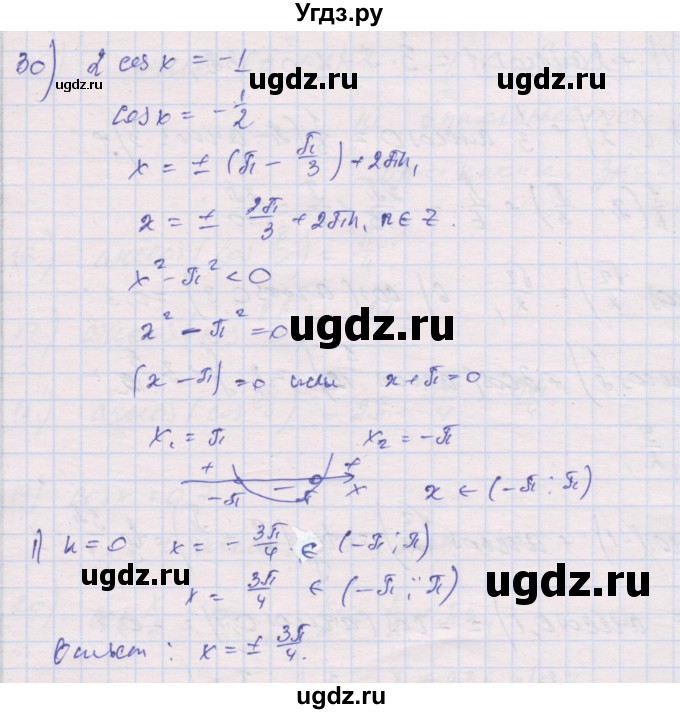 Угдз.ру
30) 2 cos x = -1
ugdz.ru ugdz.ru
cos x = -1/2
ugdz.ru
x = ± (π - π/3) + 2πn,
x = ± 2π/3 + 2πn, n ∈ Z.
x² - π² < 0
x² - π² = 0
ugdz.ru
(x - π) = 0 или x + π = 0
x₁ = π x₂ = -π
+ - +
-π π x
x ∈ (-π; π)
1) n = 0 x = - 3π/4 ∈ (-π; π)
ugdz.ru ugdz.ru
x = 3π/4 ∈ (-π; π)
Ответ: x = ± 3π/4.
ugdz.ru